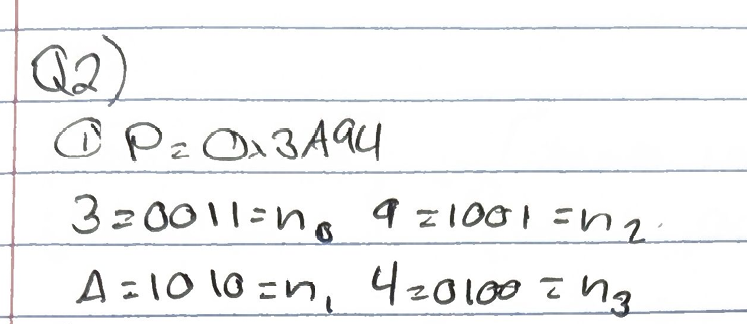 Q2)
① P = 0x3A94
3 = 0011 = n₀ 9 = 1001 = n₂.
A = 1010 = n₁ 4 = 0100 = n₃